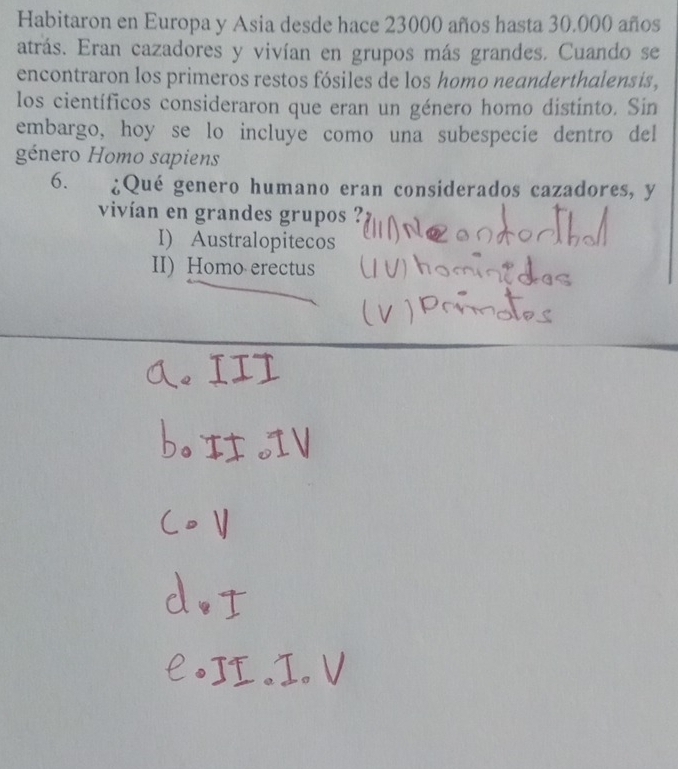 Habitaron en Europa y Asia desde hace 23000 años hasta 30.000 años
atrás. Eran cazadores y vivían en grupos más grandes. Cuando se
encontraron los primeros restos fósiles de los homo neanderthalensis,
los científicos consideraron que eran un género homo distinto. Sin
embargo, hoy se lo incluye como una subespecie dentro del
género Homo sapiens
6. ¿Qué genero humano eran considerados cazadores, y
vivían en grandes grupos ?
I) Australopitecos
II) Homo erectus
(III) Neanderthal
(IV) hominidos
(V) Primates
a. III
b. II . IV
c. V
d. I
e. II . I . V